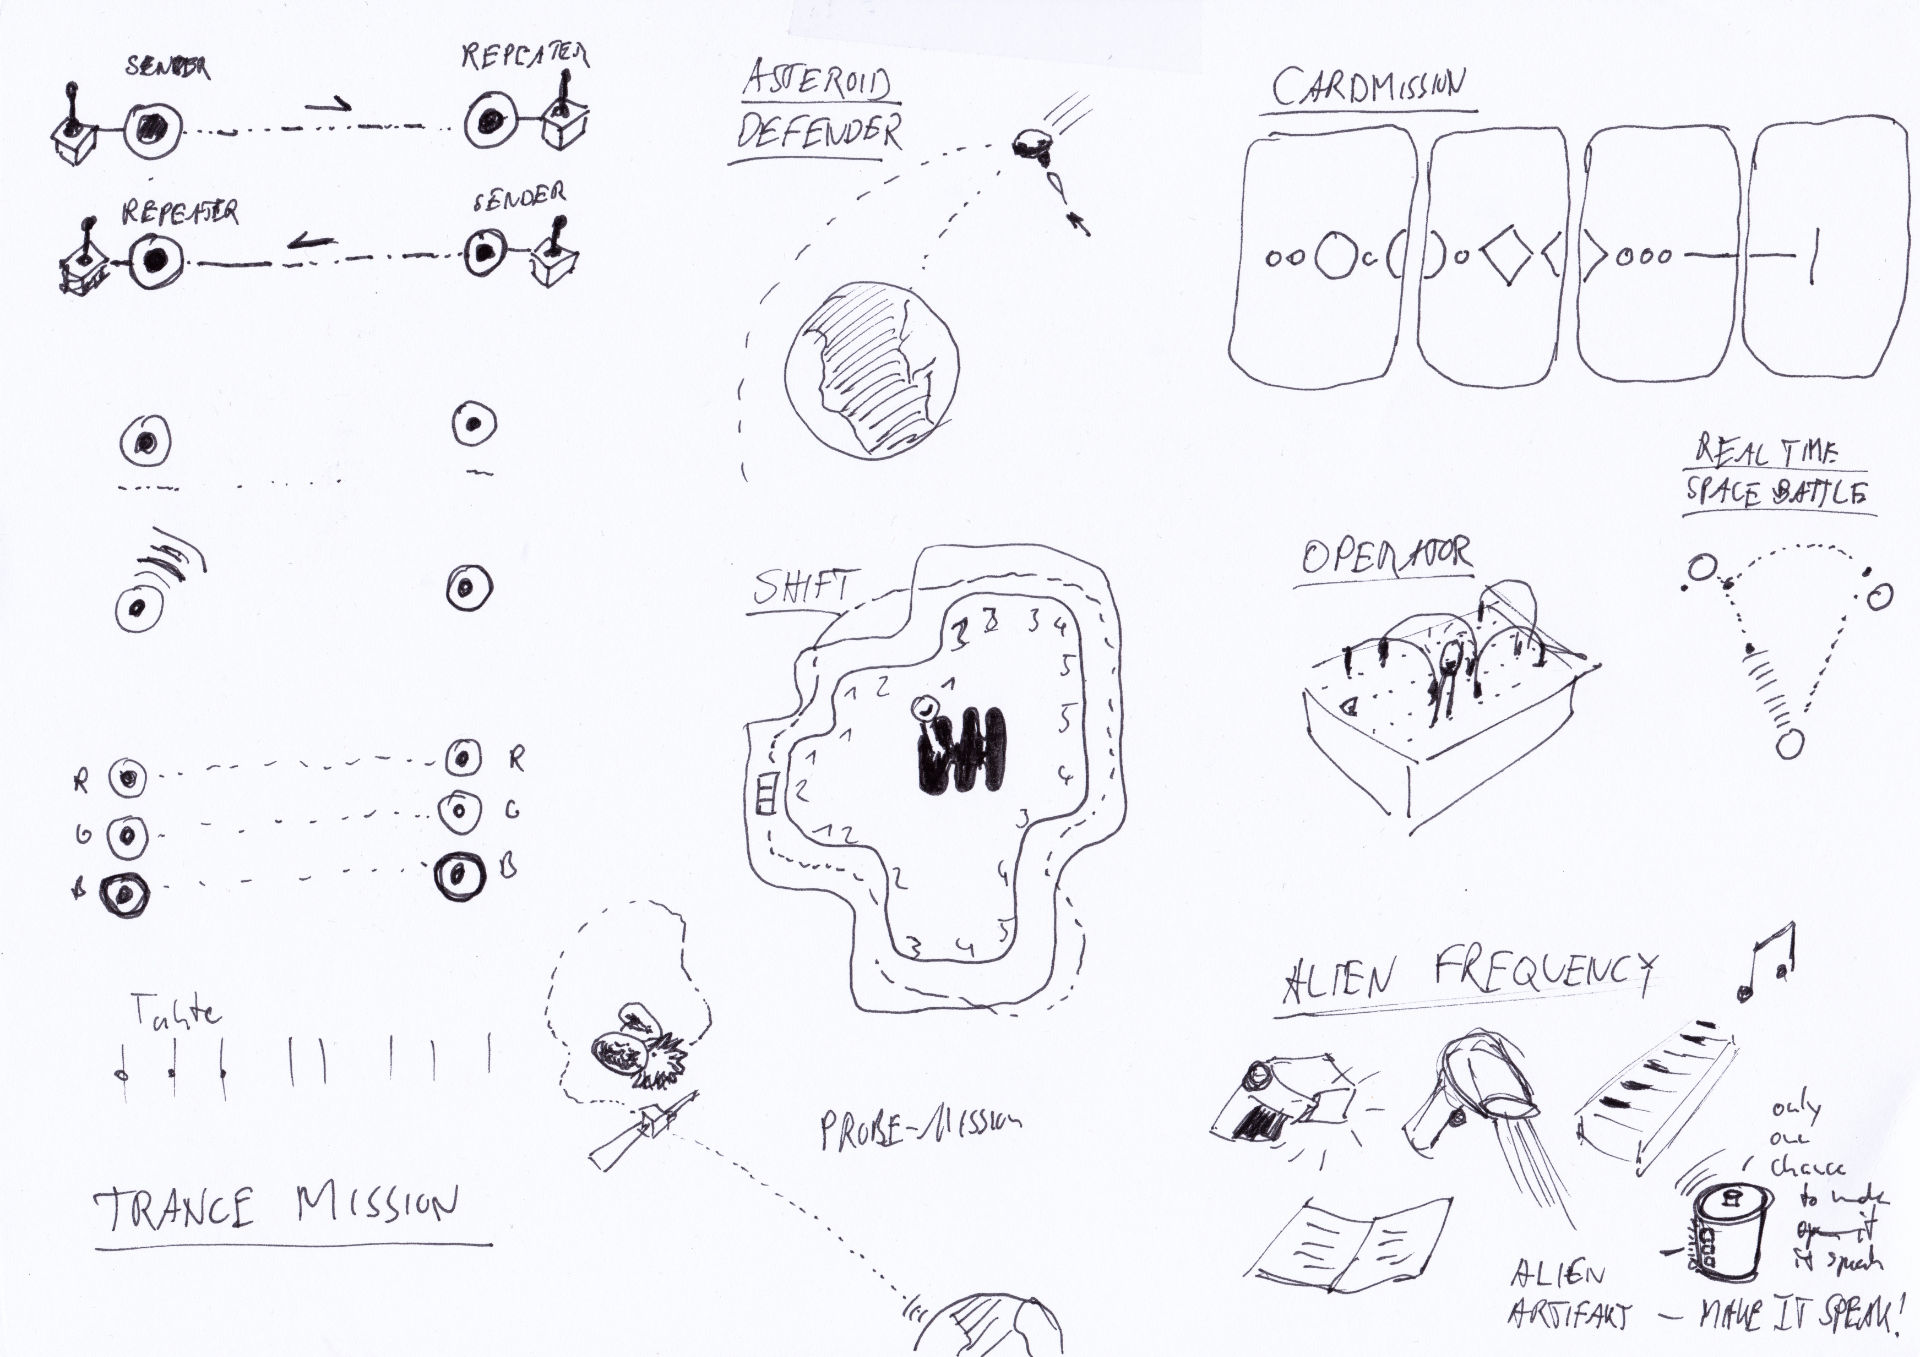 SENDER
REPEATER
REPEATER
SENDER
R
R
G
G
B
B
Takte
TRANCE MISSION
ASTEROID
DEFENDER
SHIFT
2 3 4
5
5
4
3
4
5
4
3
2
1 2
2
1
1
1 2
1
PROBE-MISSION
CARDMISSION
REAL TIME
SPACE BATTLE
OPERATOR
ALIEN FREQUENCY
only
one
chance
to make
open it
it speak
ALIEN
ARTIFAKT — MAKE IT SPEAK!